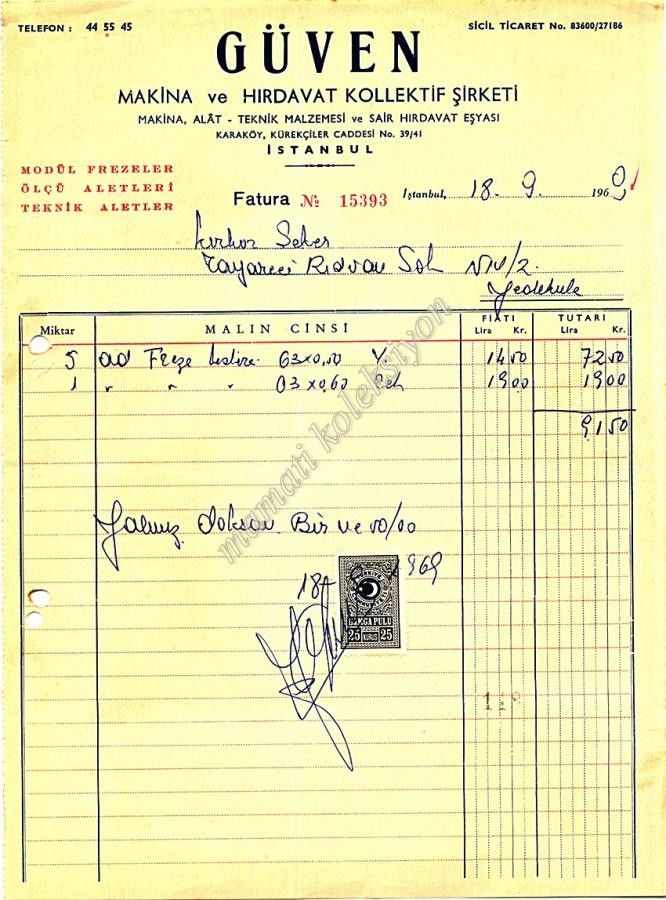 TELEFON : 44 55 45
SİCİL TİCARET No. 83600/27186
GÜVEN
MAKİNA ve HIRDAVAT KOLLEKTİF ŞİRKETİ
MAKİNA, ALÂT - TEKNİK MALZEMESİ ve SAİR HIRDAVAT EŞYASI
KARAKÖY, KÜREKÇİLER CADDESİ No. 39/41
İSTANBUL
MODÜL FREZELER
ÖLÇÜ ALETLERİ
TEKNİK ALETLER
Fatura № 15393
İstanbul, 18 . 9 . 1969
Şeker
Tayareci Rıdvan Sok
Yedikule
Miktar MALIN CİNSİ FİATI Lira Kr. TUTARI Lira Kr.
5 ad Freze 63x0,50 1450 7250
1 " " " 63x0,60 1900 1900
9150
Yalnız Doksan Bir ve 50/00
18 9 1969
DAMGA PULU
25 KURUŞ 25
mamati koleksiyon